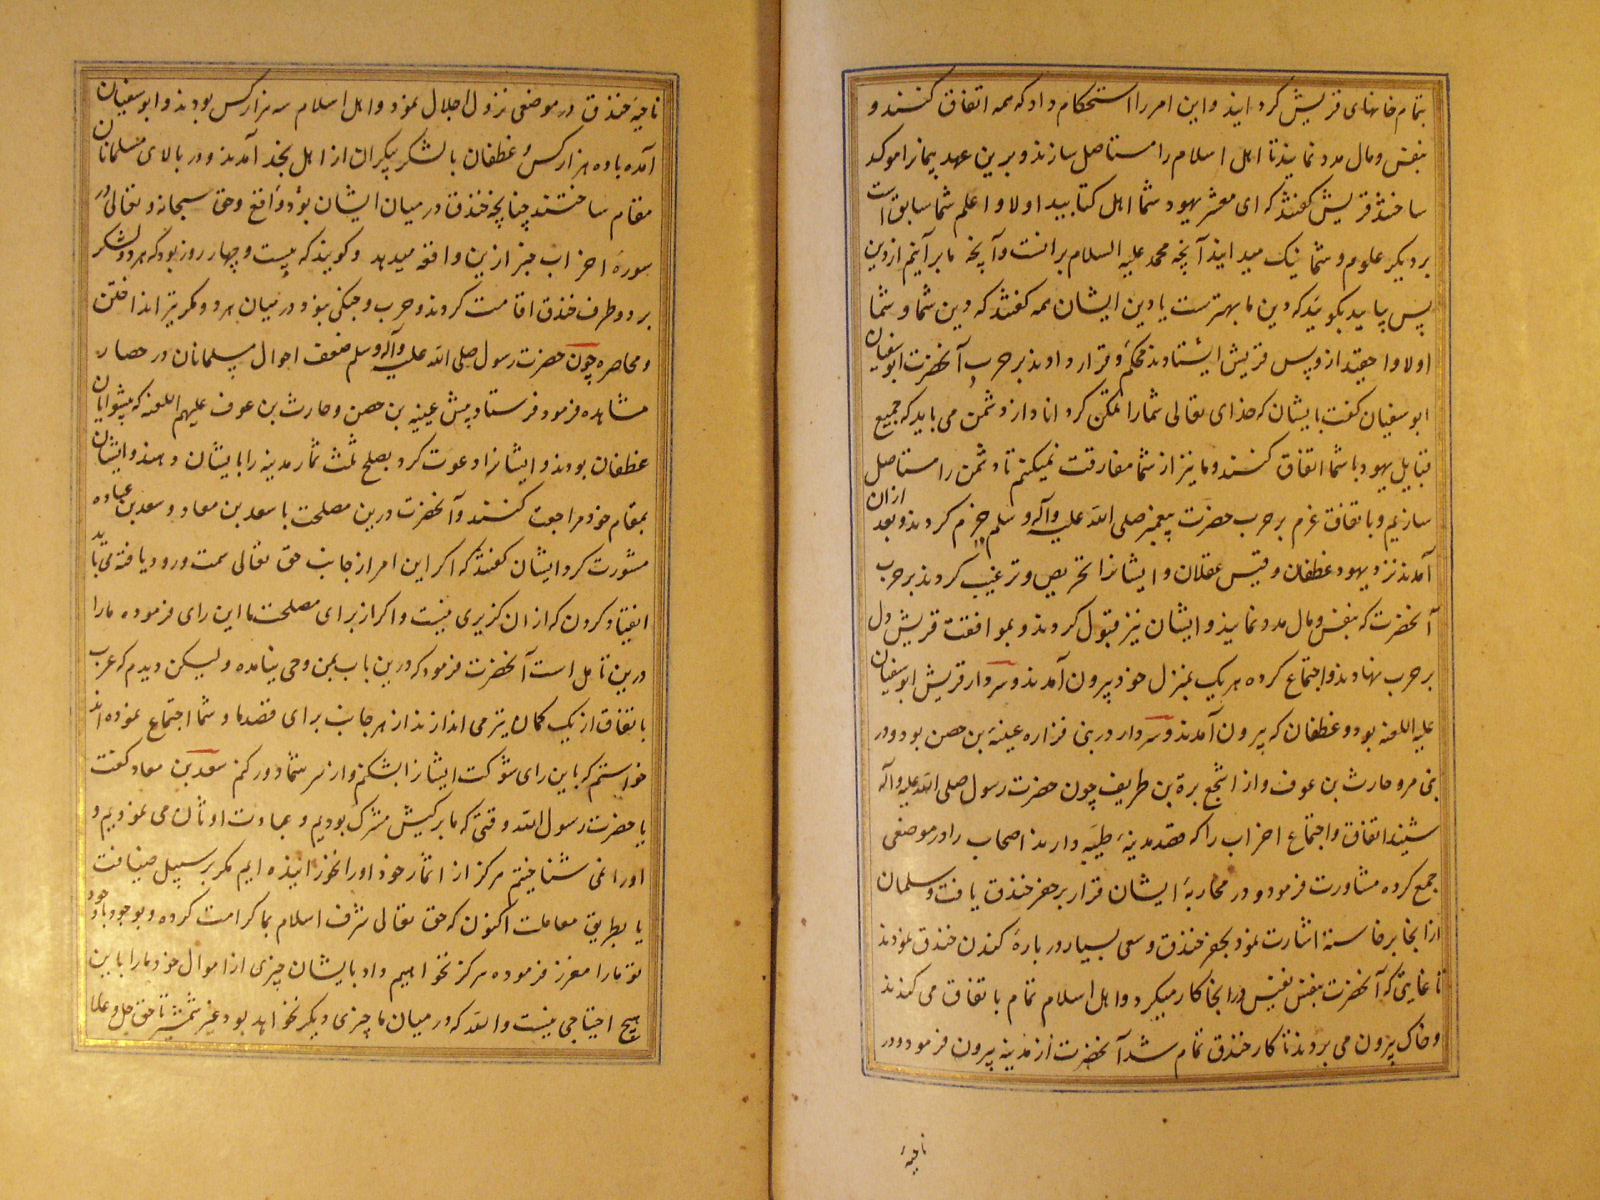 بتمام خانهای قریش کرد ایند و این امر را استحکام داد که همه اتفاق کنند و
بنفس و مال مدد نمایند تا اهل اسلام را مستاصل سازند و برین عهد پیمان را موکد
ساختند قریش گفتند که ای معشر یهود شما اهل کتابید اولا و اعلم شما سابق است
بر دیگر علوم و شما نیک میدانید آنچه محمد علیه السلام برانست و آنچه ما برآنیم از دین
پس بیاید بگویند که دین ما بهترست یا دین ایشان همه گفتند که دین شما و شما
اولا و احقید ازو پس قریش ایستادند محکم و قرار دادند بر حرب آنحضرت ابوسفیان
ابو سفیان گفت بایشان که خدای تعالی شما را ممکن گرداناد از دشمن می باید که جمیع
قبایل یهود با شما اتفاق کنند و ما نیز از شما مفارقت نمیکنم تا دشمن را مستاصل
سازیم و باتفاق عزم بر حرب حضرت پیغمبر صلی الله علیه وآله وسلم جزم کردند و بعد ازان
آمدند نزد یهود غطفان و قیس عقلان و ایشانرا تحریص و ترغیب کردند بر حرب
آنحضرت که بنفس و مال مدد نمایند و ایشان نیز قبول کردند و بموافقت قریش دل
بر حرب نهادند و اجتماع کرده هر یک بمنزل خود بیرون آمدند و سردار قریش ابوسفیان
علیه اللعنه بود و غطفان که بیرون آمدند و سردار در بنی فزاره عینیة بن حصن بود و در
بنی مره حارث بن عوف و از اشجع برة بن طریف چون حضرت رسول صلی الله علیه وآله
شنید اتفاق و اجتماع احزاب را که قصد مدینهٔ طیبه دارند اصحاب را در موضعی
جمع کرده مشاورت فرمود و در محاربهٔ ایشان قرار بر حفر خندق یافت و سلمان
از انجا برخاسته اشارت نمود بحفر خندق و سعی بسیار در بارهٔ کندن خندق نمودند
تا غایتی که آنحضرت بنفس نفیس در انجا کار میکرد و اهل اسلام تمام باتفاق می کندند
و خاک بیرون می بردند تا کار خندق تمام شد آنحضرت از مدینه بیرون فرمود و در
ناحیهٔ
ناحیهٔ خندق در موضعی نزول اجلال نمود و اهل اسلام سه هزار کس بودند و ابوسفیان
آمده با ده هزار کس و غطفان با لشکر بیکران از اهل نجد آمدند و در بالای مسلمانان
مقام ساختند چنانچه خندق در میان ایشان بود واقع و حق سبحانه و تعالی در
سورهٔ احزاب خبر ازین واقعه میدهد و گویند که بیست و چهار روز بود که هر دو لشکر
بر دو طرف خندق اقامت کردند و حرب و جنگی نبود در میان هر دو مگر تیر انداختن
و محاصره چون حضرت رسول صلی الله علیه وآله وسلم ضعف احوال مسلمانان در حصار
مشاهده فرمود فرستاد پیش عینیه بن حصن و حارث بن عوف علیهم اللعنه که پیشوایان
غطفان بودند و ایشانرا دعوت کرد بصلح ثلث ثمار مدینه را بایشان دهند و ایشان
بمقام خود مراجعت کنند و آنحضرت درین مصلحت با سعد بن معاد و سعد بن عباده
مشورت کرد ایشان گفتند که اگر این امر از جانب حق تعالی سمت ورود یافته می باید
انقیاد کردن که ازان گزیری نیست و اگر از برای مصلحت ما این رای فرموده ما را
درین تامل است آنحضرت فرمود که درین باب بمن وحی نیامده و لیکن دیدم که عرب
باتفاق از یک کمان تیر می اندازند از هر جانب برای قصد ما و شما اجتماع نموده اند
خواستم که باین رای شوکت ایشانرا بشکنم و از سر شما دور کنم سعد بن معاد گفت
یا حضرت رسول الله وقتی که ما بر کیش مشرک بودیم و عبادت اوثان می نمودیم و
او را نمی شناختیم هرگز از اثمار خود او را نخورانیده ایم مگر بر سبیل ضیافت
یا بطریق معاملت اکنون که حق تعالی شرف اسلام بما کرامت کرده و بوجود باجود
تو ما را معزز فرموده هرگز نخواهیم داد بایشان چیزی از اموال خود ما را باین
هیچ احتیاجی نیست والله که در میان ما چیزی دیگر نخواهد بود غیر شمشیر تا حق جل و علا